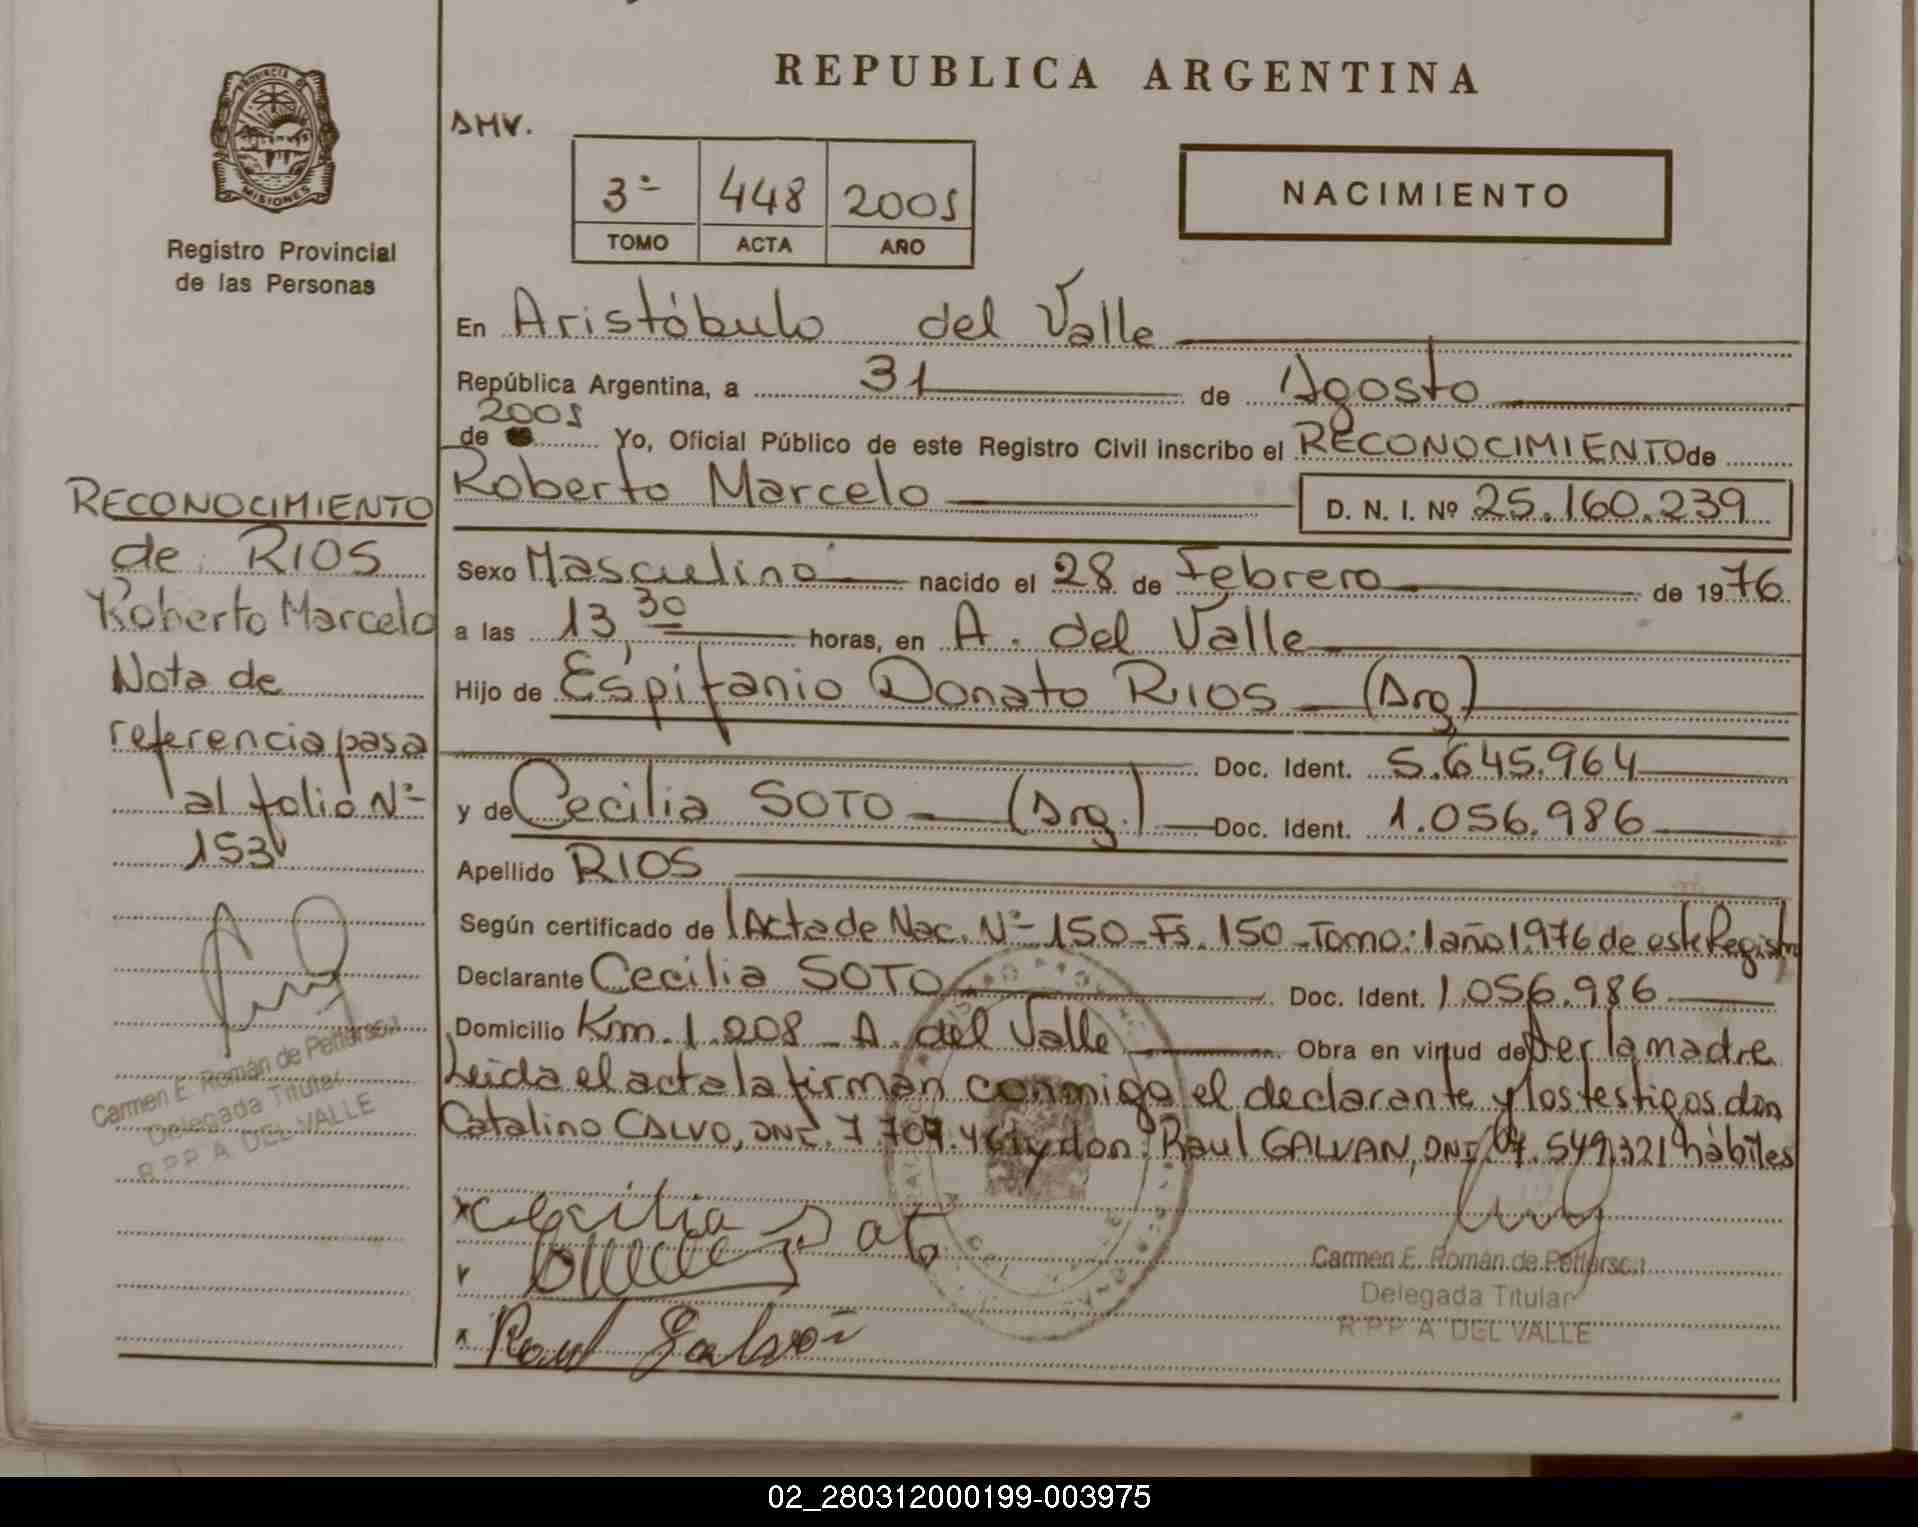 REPUBLICA ARGENTINA
PROVINCIA D
MISIONES
Registro Provincial
de las Personas
3º 448 2005
TOMO ACTA AÑO
NACIMIENTO
En Aristóbulo del Valle
República Argentina, a 31 de Agosto
2005
de Yo, Oficial Público de este Registro Civil inscribo el RECONOCIMIENTO de
Roberto Marcelo D. N. I. Nº 25.160.239
Sexo Masculino nacido el 28 de Febrero de 1976
a las 13,30 horas, en A. del Valle
Hijo de Espifanio Donato RIOS (Arg)
Doc. Ident. 5.645.964
y de Cecilia SOTO (Arg.) Doc. Ident. 1.056.986
Apellido RIOS
Según certificado de Acta de Nac. Nº 150 - Fs. 150 - Tomo: 1 año 1.976 de este Registro
Declarante Cecilia SOTO Doc. Ident. 1.056.986
Domicilio Km. 1.208 - A. del Valle Obra en virtud de ser la madre
Leida el acta la firman conmigo el declarante y los testigos don
Catalino CALVO, DNI. 7.709.461 y don: Raul GALVAN, DNI 07.549.321 hàbiles
Cecilia Soto
Raul Galvan
Carmen E. Román de Petterson
Delegada Titular
R.P.P. A. DEL VALLE
RECONOCIMIENTO
de RIOS
Roberto Marcelo
Nota de
referencia pasa
al folio Nº
153
Carmen E. Román de Petterson
Delegada Titular
R.P.P. A. DEL VALLE
02_280312000199-003975